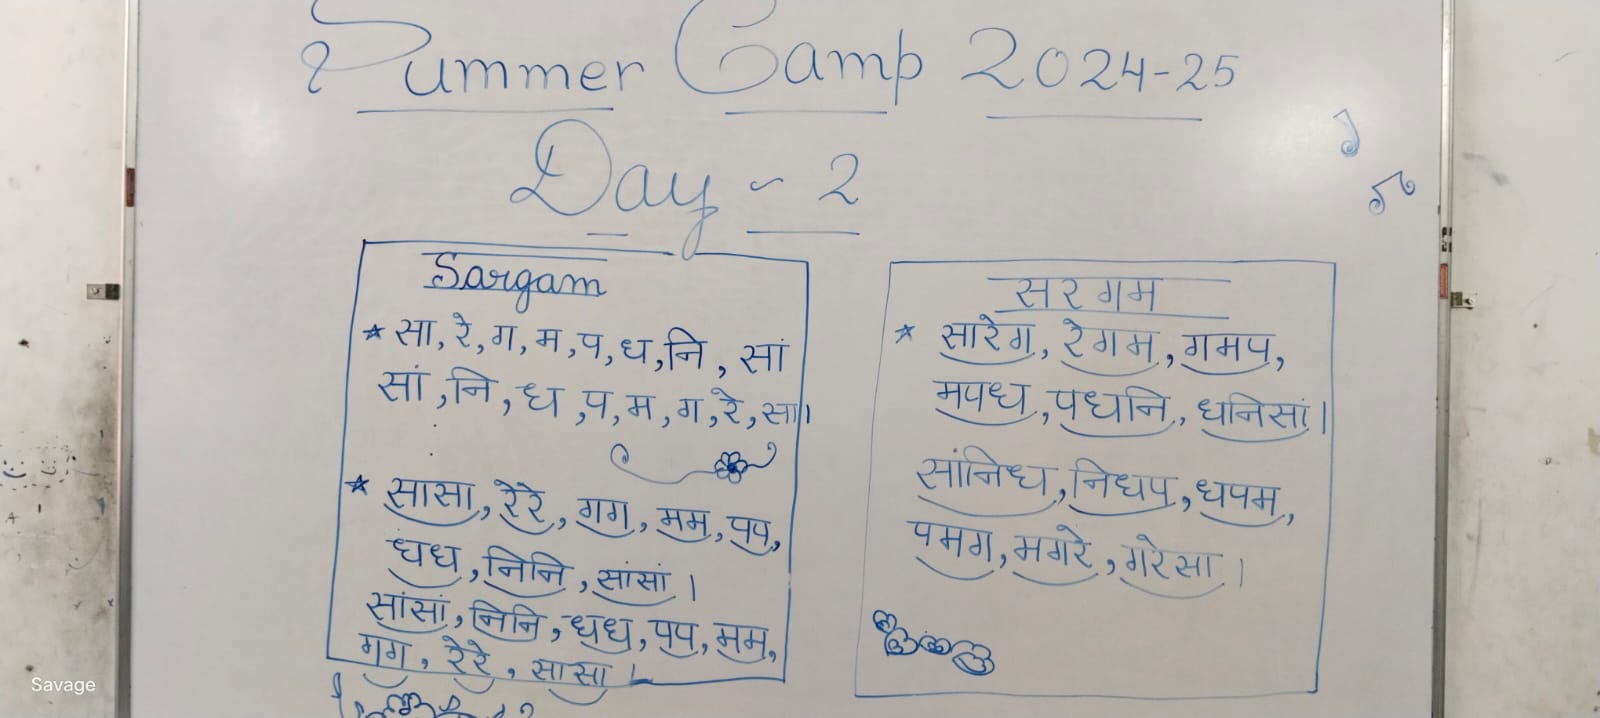 Summer Camp 2024-25
Day - 2
Sargam
* सा, रे, ग, म, प, ध, नि, सां
सां, नि, ध, प, म, ग, रे, सा।
* सासा, रेरे, गग, मम, पप,
धध, निनि, सांसां।
सांसां, निनि, धध, पप, मम,
गग, रेरे, सासा।
सरगम
* सारेग, रेगम, गमप,
मपध, पधनि, धनिसां।
सांनिध, निधप, धपम,
पमग, मगरे, गरेसा।
Savage